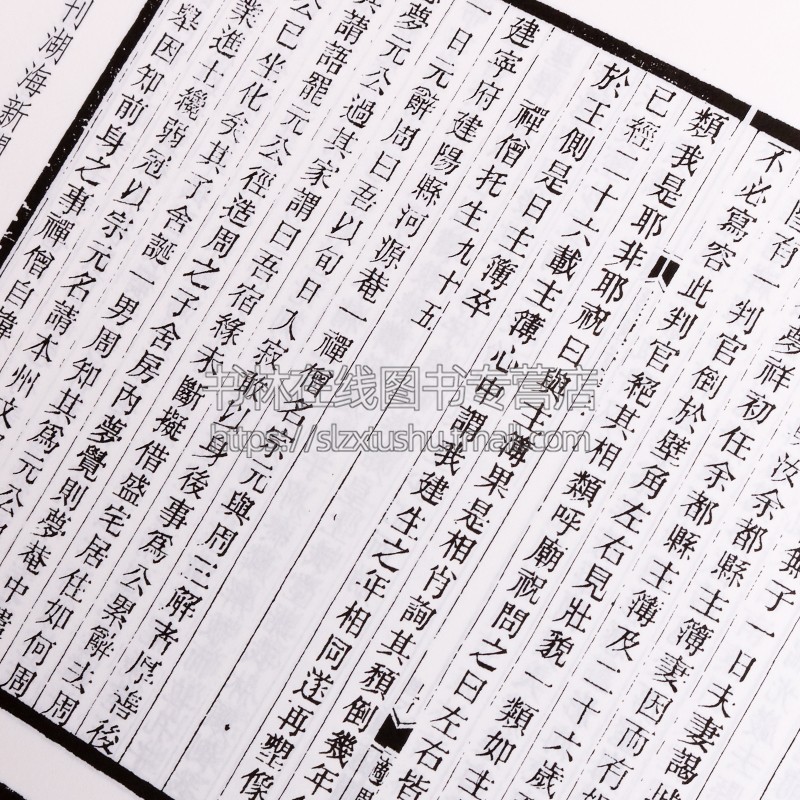 有一夢祥初任余都縣主簿妻因而有
不必寫容此判官倒於壁角左右見壯貌一類如主
類我是耶非耶祝曰與主簿果是相肖詢其頹倒幾年
已經二十六載主簿心中謂我建生之年相同遂再塑像
於王側是日主簿卒
禪僧托生九十五
建寧府建陽縣河源菴一禪僧名宗元與周三解者厚善後
一日元辭周曰吾以旬日入寂敢以身後事為公累辭去周
夢元公過其家謂曰吾宿緣未斷擬借盛宅居住如何周
其請語罷元公徑造周之子舍房內夢覺則夢菴中
公已坐化矣其子舍誕一男周知其為元公
業進士纔弱冠以宗元名請本州文
舉因知前身之事禪僧自
刊湖海新
书林在线图书专营店
https://slzxtushu.tmall.com